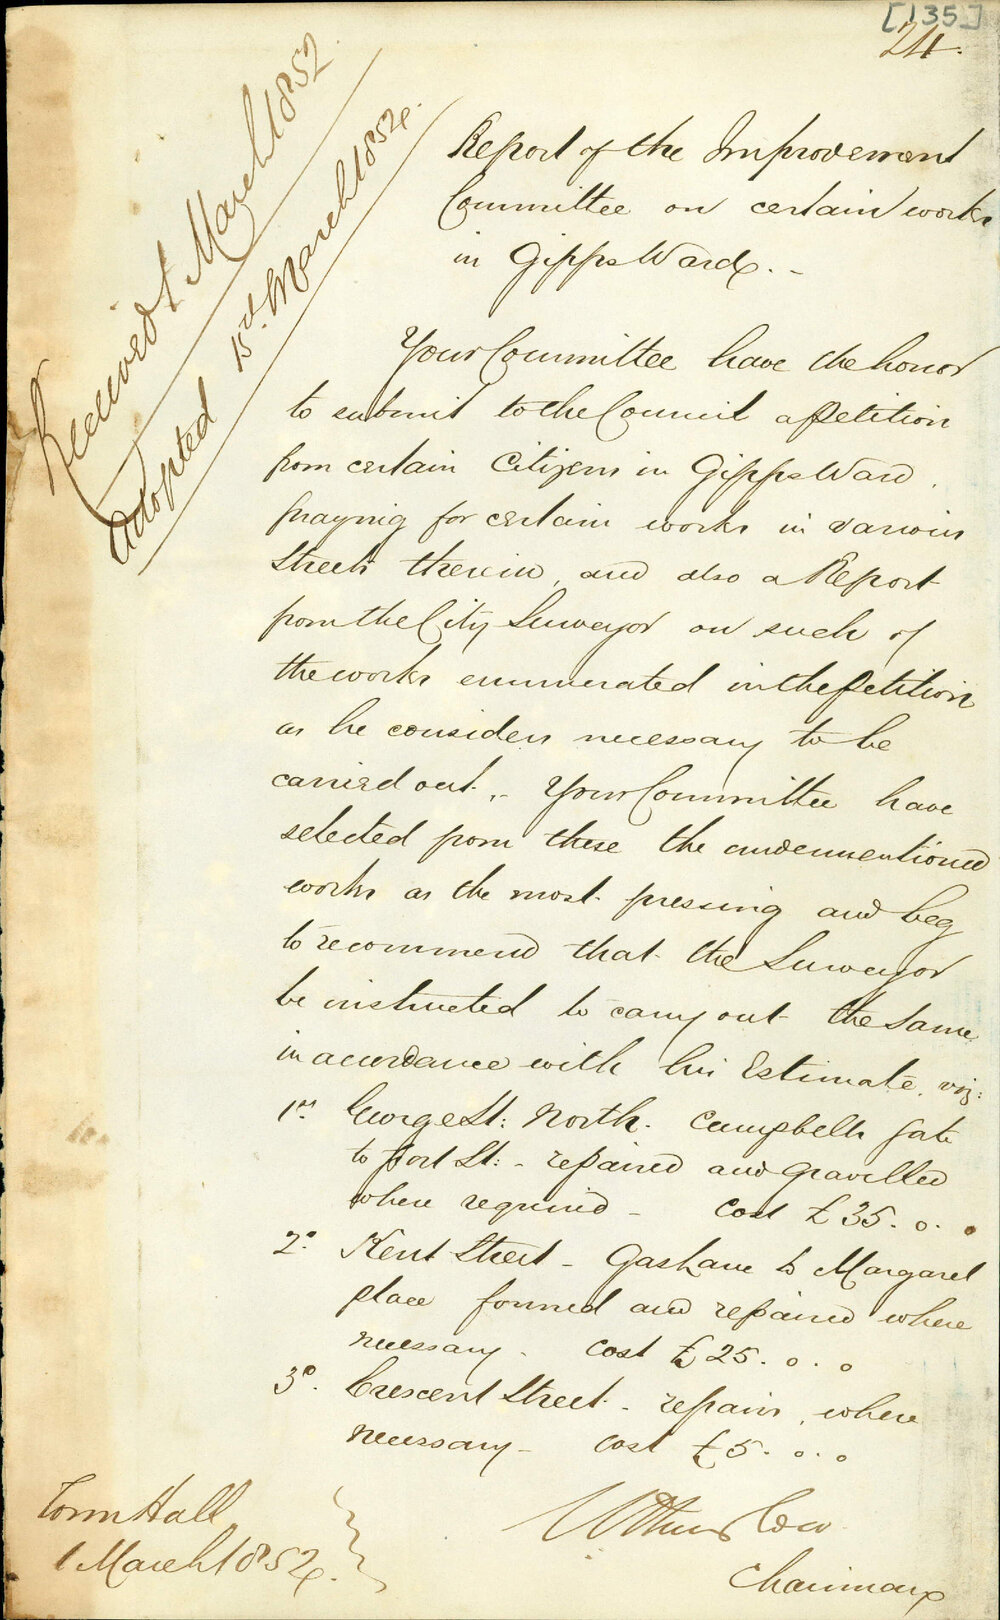 [135]
24.
Received 1 March 1852
Adopted 15th March 1852.
Report of the Improvement
Committee on certain works
in Gipps Ward. -
Your Committee have the honor
to submit to the Council a Petition
from certain Citizens in Gipps Ward,
praying for certain works in various
Streets therein, and also a Report
from the City Surveyor on such of
the works enumerated in the Petition
as he considers necessary to be
carried out. - Your Committee have
selected from these the undermentioned
works as the most pressing and beg
to recommend that the Surveyor
be instructed to carry out the same
in accordance with his Estimate, viz:
1st George St: North. Campbells gate
to Fort St: - repaired and gravelled
where required - Cost £35. 0. 0
2o. Kent Street - Gas Lane to Margaret
place formed and repaired where
necessary - cost £25. 0. 0
3o. Crescent Street - repairs, where
necessary - cost £5. 0. 0
Town Hall
1 March 1852.
Chairman